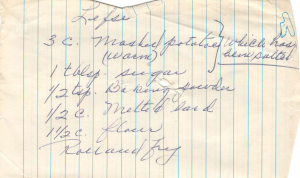 Lefse
3 c. Mashed potatoes } which has
(warm) been salted
1 tblsp. sugar
1/2 tsp. Baking powder
1/2 c. Melted lard
1 1/2 c. flour
Roll and fry